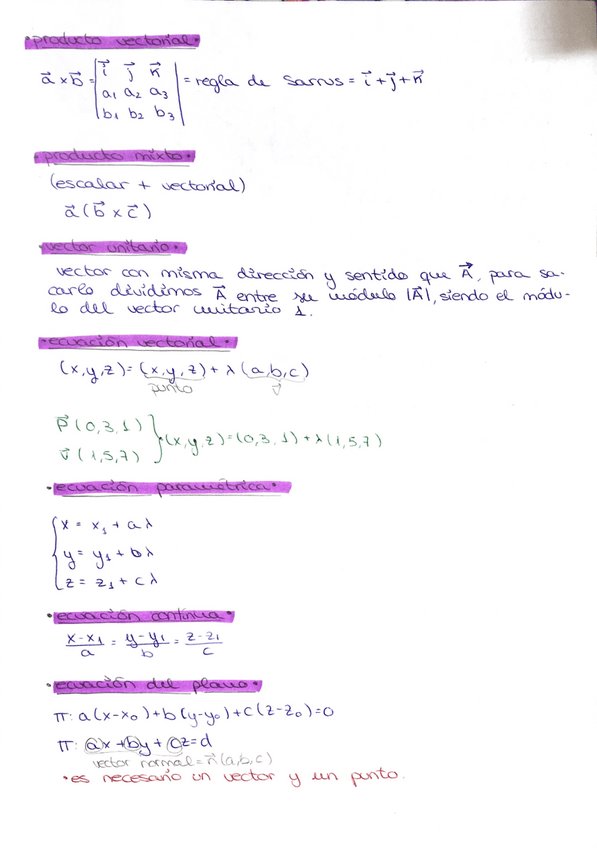 • producto vectorial •
a⃗ x b⃗ = | i⃗ j⃗ k⃗ | = regla de Sarrus = i⃗ + j⃗ + k⃗
a₁ a₂ a₃
b₁ b₂ b₃
• producto mixto •
(escalar + vectorial)
a⃗ (b⃗ x c⃗)
• vector unitario •
vector con misma dirección y sentido que A⃗, para sa-
carlo dividimos A⃗ entre su módulo |A⃗|, siendo el módu-
lo del vector unitario 1.
• ecuación vectorial •
(x,y,z) = (x,y,z) + λ (a,b,c)
punto v⃗
P⃗ (0,3,1)
v⃗ (1,5,7) } (x,y,z) = (0,3,1) + λ (1,5,7)
• ecuación paramétrica •
x = x₁ + aλ
y = y₁ + bλ
z = z₁ + cλ
• ecuación continua •
(x-x₁)/a = (y-y₁)/b = (z-z₁)/c
• ecuación del plano •
π: a(x-x₀)+b(y-y₀)+c(z-z₀)=0
π: ax+by+cz=d
vector normal = n⃗ (a,b,c)
• es necesario un vector y un punto.